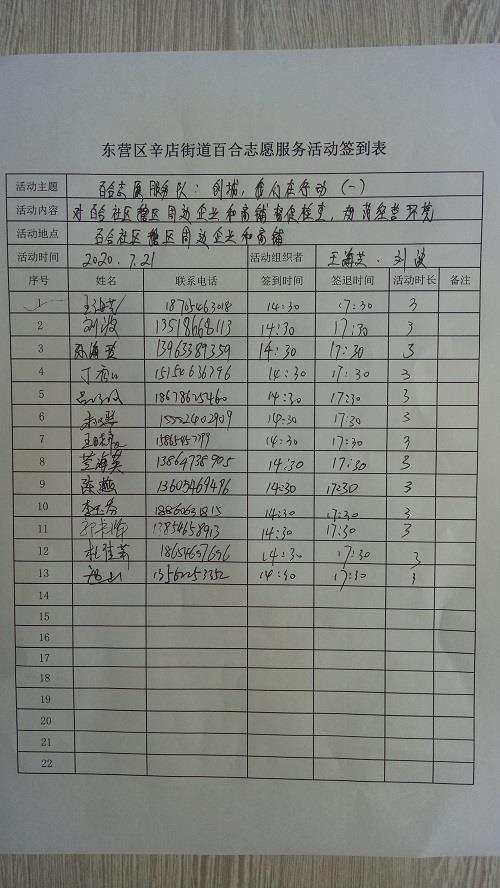 东营区辛店街道百合志愿服务活动签到表
活动主题 百合志愿服务队：创城，我们在行动（一）
活动内容 对百合社区辖区周边企业和商铺督促检查，规范经营环境
活动地点 百合社区辖区周边企业和商铺
活动时间 2020.7.21 活动组织者 王海芝、刘波
序号 姓名 联系电话 签到时间 签退时间 活动时长 备注
1 18705463018 14:30 17:30 3
2 刘波 13518668113 14:30 17:30 3
3 13963389359 14:30 17:30 3
4 15154636796 14:30 17:30 3
5 18678625460 14:30 17:30 3
6 15552402909 14:30 17:30 3
7 14:30 17:30 3
8 13864738905 14:30 17:30 3
9 13605469496 14:30 17:30 3
10 14:30 17:30 3
11 14:30 17:30 3
12 杜佳莉 18654697696 14:30 17:30 3
13 13562253352 14:30 17:30 3
14
15
16
17
18
19
20
21
22